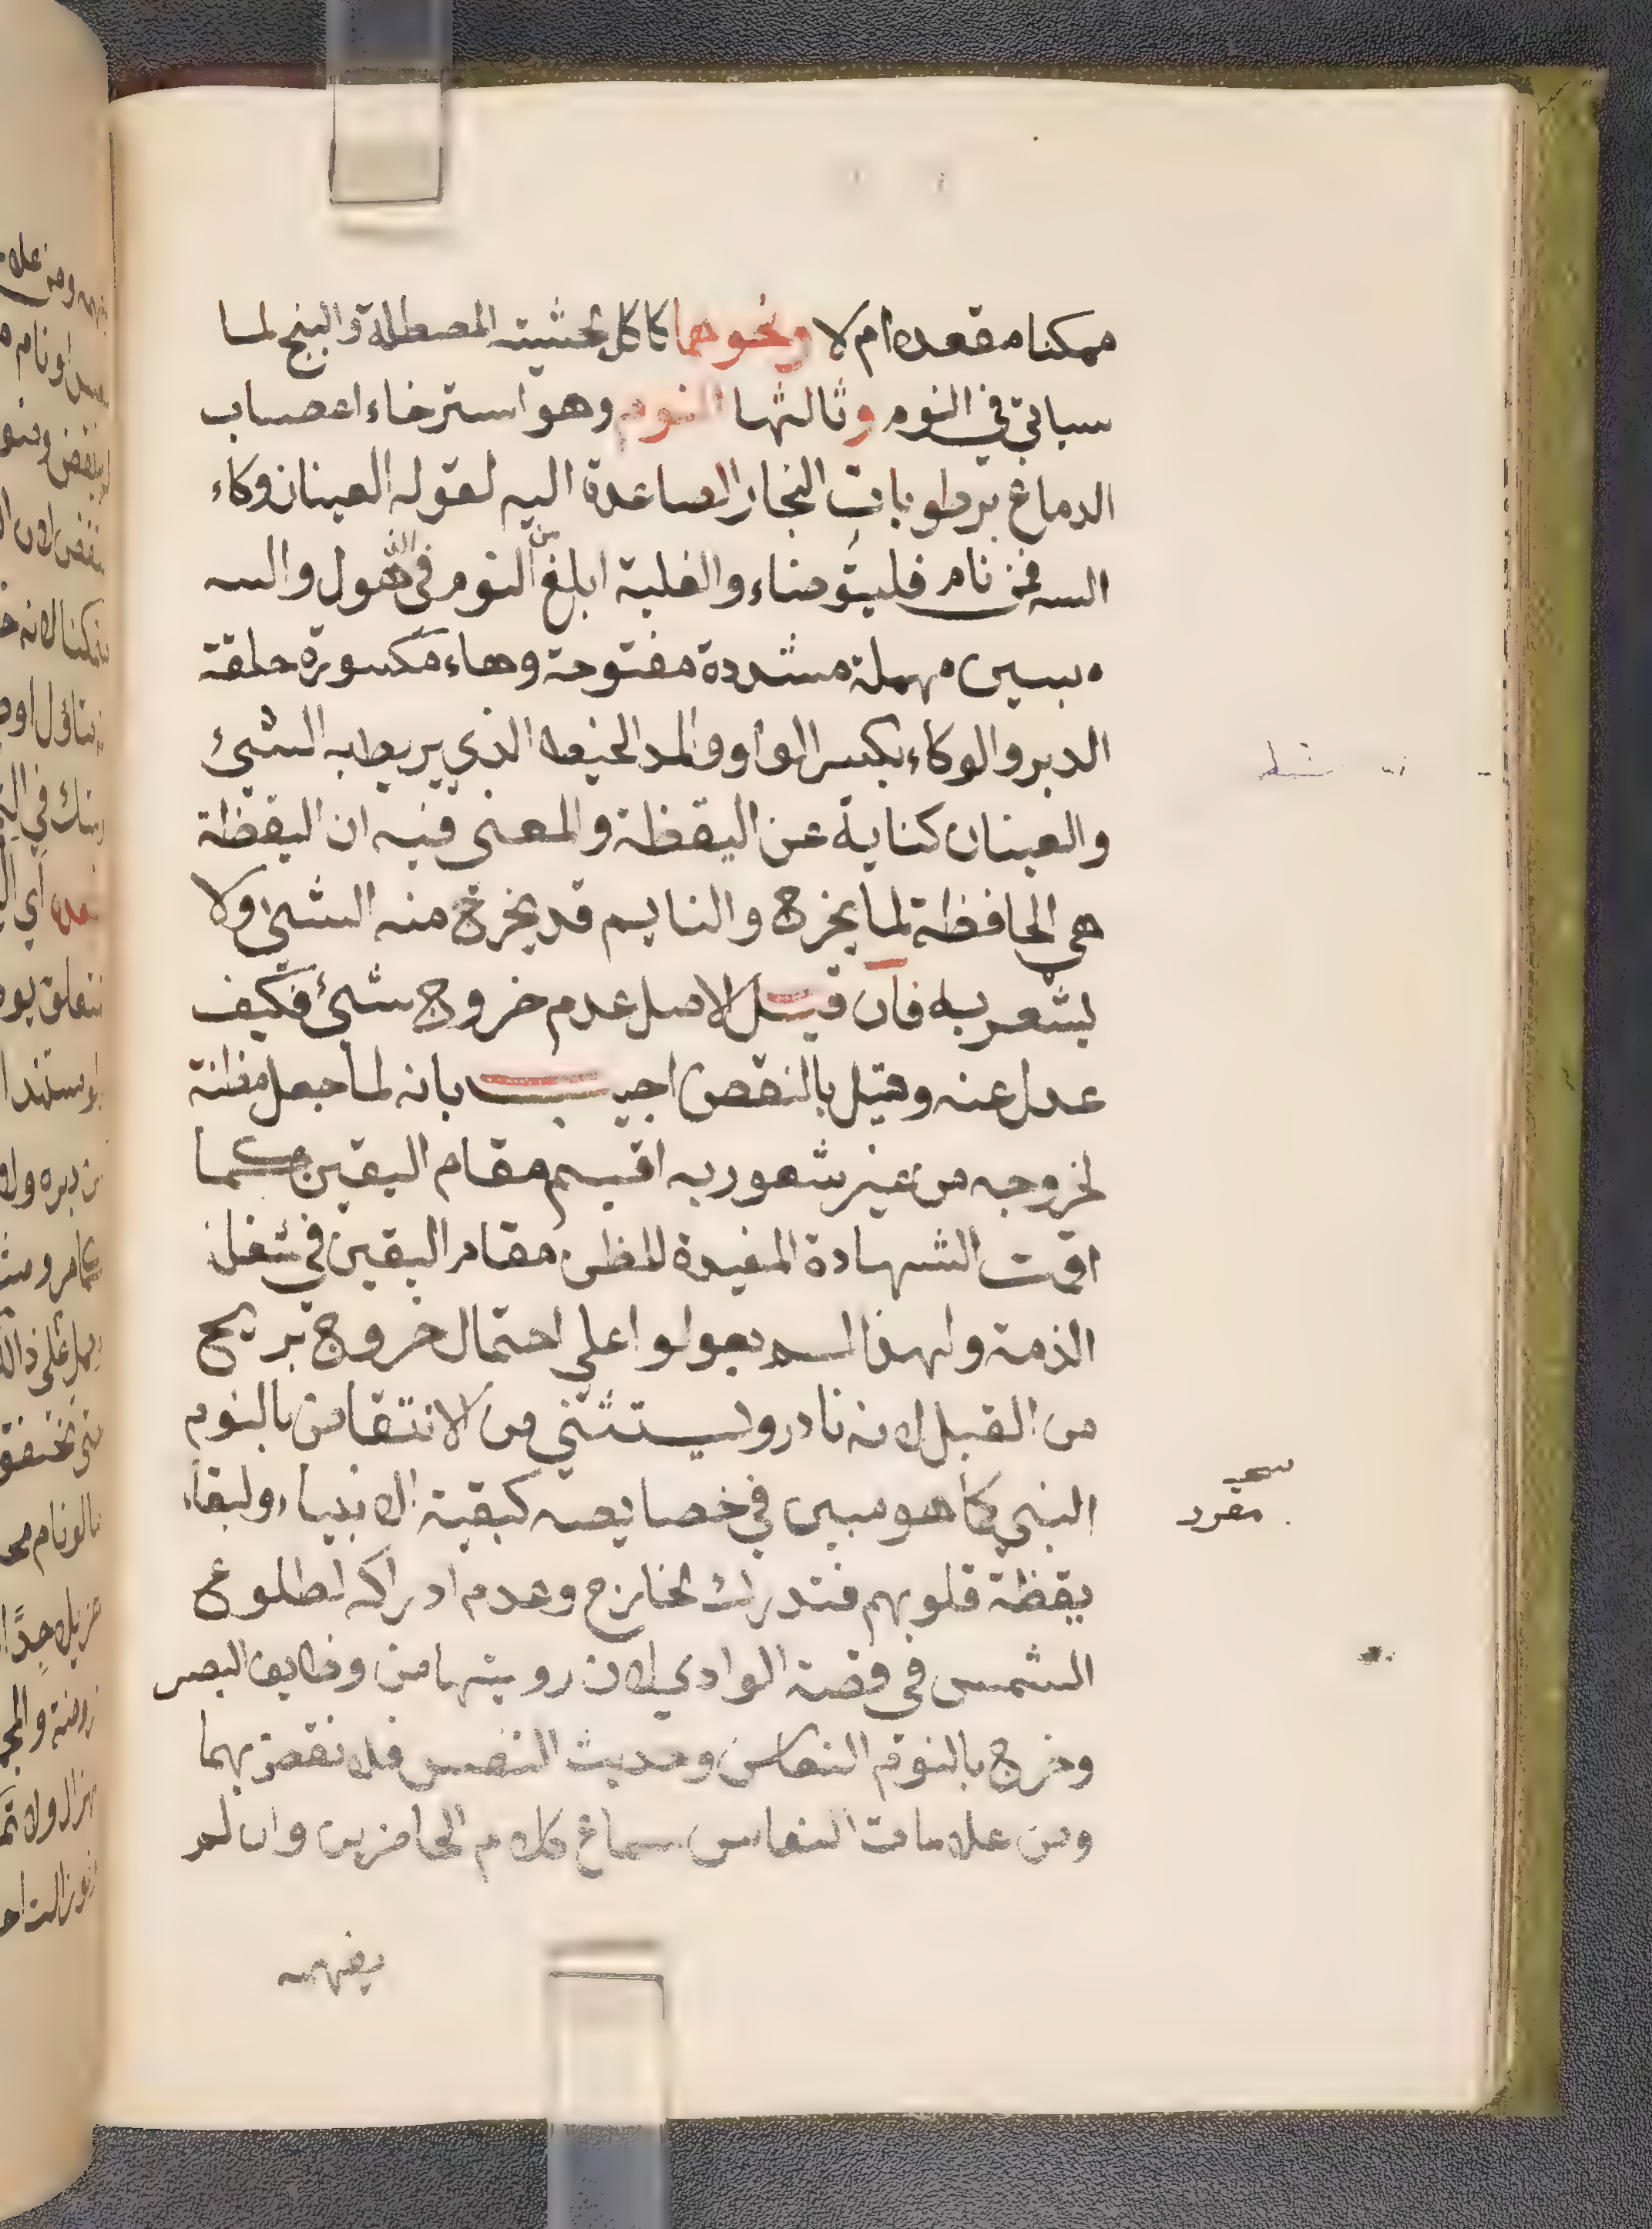 ممكنا مقعده ام لا ونحوهما كاكل الحشيشة المصطلة والبنج لما
سياتي في النوم وثالثها النوم وهو استرخاء اعصاب
الدماغ برطوبات البخار الصاعدة اليه لقوله العينان وكاء
السه فمن نام فليتوضاء والغلبة ابلغ من النوم في الذهول والسه
بسين مهملة مشددة مفتوحة وهاء مكسورة حلقة
الدبر والوكاء بكسر الواو والمد الخيط الذي يربط به الشيئ
والعينان كناية عن اليقظة والمعنى فيه ان اليقظة
هي الحافظة لما يخرج والنايم قد يخرج منه الشيئ ولا
يشعر به فان قيل الاصل عدم خروج شيئ فكيف
عدل عنه وقيل بالنقض اجيب بانه لما جعل مظنة
لخروجه من غير شعور به اقيم مقام اليقين كما
اقيمت الشهادة المفيدة للظن مقام اليقين في شغل
الذمة ولهذا لم يعولوا على احتمال خروج ريح
من القبل لانه نادر ويستثنى من الانتقاض بالنوم
النبي كما هو مبين في خصايصه كبقية الانبياء ولبقاء
يقظة قلوبهم فتدرك الخارج وعدم ادراكه لطلوع
الشمس في قصة الوادي لان رويتها من وظايف البصر
وخرج بالنوم النعاس وحديث النفس فلا نقض بهما
ومن علامات النعاس سماع كلام الحاضرين وان لم
يفهمه